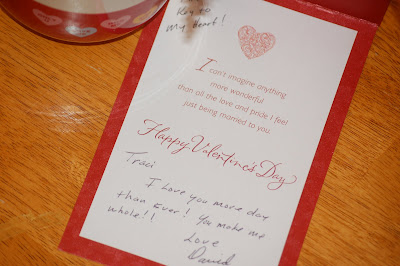 Key to
My Heart!
I can't imagine anything
more wonderful
than all the love and pride I feel
just being married to you.
Happy Valentine's Day
Traci
I love you more day
than Ever! You make me
whole!!
Love
David